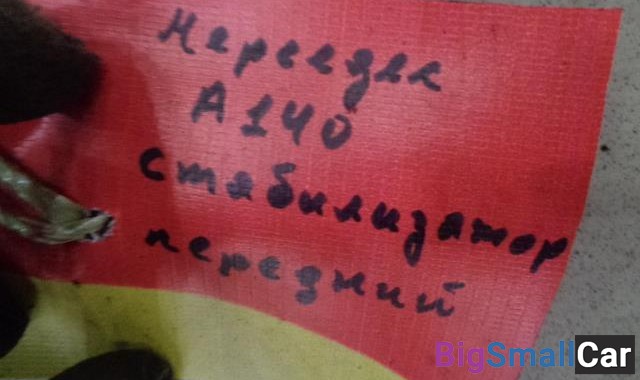 Мерседес
А140
стабилизатор
передний
BigSmallCar